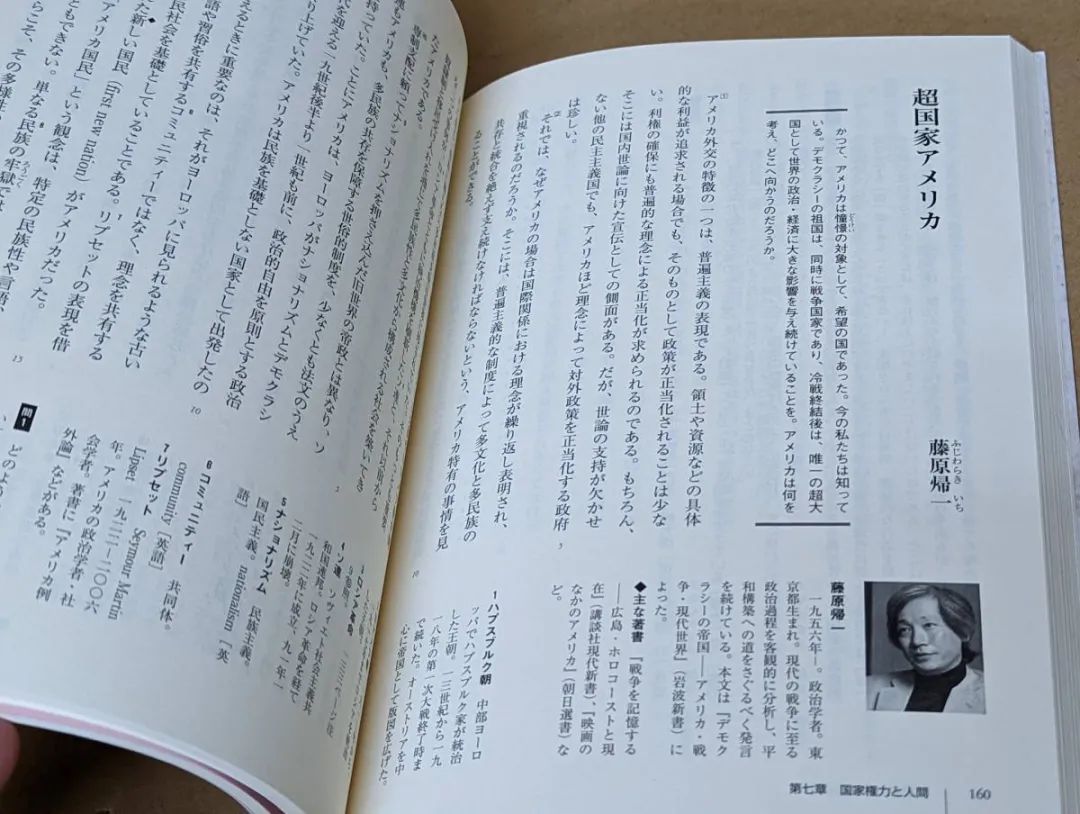 超国家アメリカ
藤原帰一
ふじわらき いち
かつて、アメリカは憧憬の対象として、希望の国であった。今の私たちは知って
いる。デモクラシーの祖国は、同時に戦争国家であり、冷戦終結後は、唯一の超大
国として世界の政治・経済に大きな影響を与え続けていることを。アメリカは何を
考え、どこへ向かうのだろうか。
アメリカ外交の特徴の一つは、普遍主義の表現である。領土や資源などの具体
的な利益が追求される場合でも、そのものとして政策が正当化されることは少な
い。利権の確保にも普遍的な理念による正当化が求められるのである。もちろん、
そこには国内世論に向けた宣伝としての側面がある。だが、世論の支持が欠かせ
ない他の民主主義国でも、アメリカほど理念によって対外政策を正当化する政府
は珍しい。
それでは、なぜアメリカの場合は国際関係における理念が繰り返し表明され、
重視されるのだろうか。そこには、普遍主義的な制度によって多文化と多民族の
共存と統合を絶えず支え続けなければならないという、アメリカ特有の事情を見
ることができる。
5
10
藤原帰一
一九五六年―。政治学者。東
京都生まれ。現代の戦争に至る
政治過程を客観的に分析し、平
和構築への道をさぐるべく発言
を続けている。本文は『デモク
ラシーの帝国――アメリカ・戦
争・現代世界』(岩波新書)に
よった。
◆主な著書 『戦争を記憶する
――広島・ホロコーストと現
在』(講談社現代新書)、『映画の
なかのアメリカ』(朝日選書)な
ど。
1 ハプスブルク朝 中部ヨーロ
ッパでハプスブルク家が統治
した王朝。一三世紀から一九
一八年の第一次大戦終了時ま
で続いた。オーストリアを中
心に帝国として版図を広げた。
第七章 国家権力と人間
160
専制支配に頼ってナショナリズムを押さえ込んだ旧世界の帝政とは異なり、ソ
るアメリカも、多民族の共存を保障する世俗的制度を、少なくとも法文のうえ
で持っていた。ことにアメリカは、ヨーロッパがナショナリズムとデモクラシ
の時代を迎える一九世紀後半より一世紀も前に、政治的自由を原則とする政治
り上げていた。アメリカは民族を基礎としない国家として出発したの
えるときに重要なのは、それがヨーロッパに見られるような古い
語や習俗を共有するコミュニティーではなく、理念を共有する
民社会を基礎としていることである。リプセットの表現を借
た新しい国民（first new nation）がアメリカだった。
アメリカ国民」という観念は、特定の民族性や言語、
ともできない。単なる民族の牢獄では
らこそ、その多様性
5
10
15
4 ソ連 ソヴィエト社会主義共
和国連邦。ロシア革命を経て
一九二二年に成立、九一年一
二月に崩壊。
5 ナショナリズム 民族主義。
国民主義。nationalism［英
語］
6 コミュニティー 共同体。
community［英語］
7 リプセット Seymour Martin
Lipset 一九二二―二〇〇六
年。アメリカの政治学者・社
会学者。著書に『アメリカ例
外論』などがある。
問1
どのよう